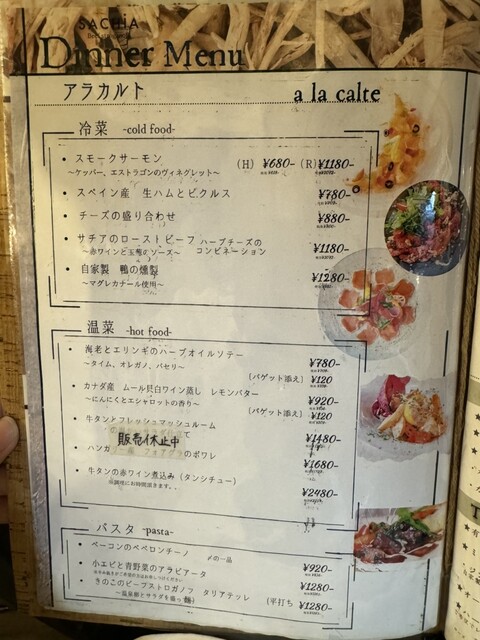 SACHIA
Dinner Menu
アラカルト a la calte
冷菜 -cold food-
• スモークサーモン (H) ¥680- (R)¥1180-
～ケッパー、エストラゴンのヴィネグレット～
• スペイン産 生ハムとピクルス ¥780-
• チーズの盛り合わせ ¥880-
• サチアのローストビーフ ハーブチーズのコンビネーション ¥1180-
～赤ワインと玉葱のソース～
• 自家製 鴨の燻製 ¥1280-
～マグレカナール使用～
温菜 -hot food-
• 海老とエリンギのハーブオイルソテー ¥780-
～タイム、オレガノ、パセリ～
(バゲット添え) ¥120
• カナダ産 ムール貝白ワイン蒸し レモンバター ¥920-
～にんにくとエシャロットの香り～
(バゲット添え) ¥120
• 牛タンとフレッシュマッシュルーム ¥1480-
販売休止中
• ハンガ のポワレ ¥1680-
• 牛タンの赤ワイン煮込み (タンシチュー) ¥2480-
パスタ -pasta-
• ベーコンのペペロンチーノ 〆の一品 ¥920-
• 小エビと青野菜のアラビアータ ¥1280-
• きのこのビーフストロガノフ タリアテッレ (平打ち麺) ¥1280-